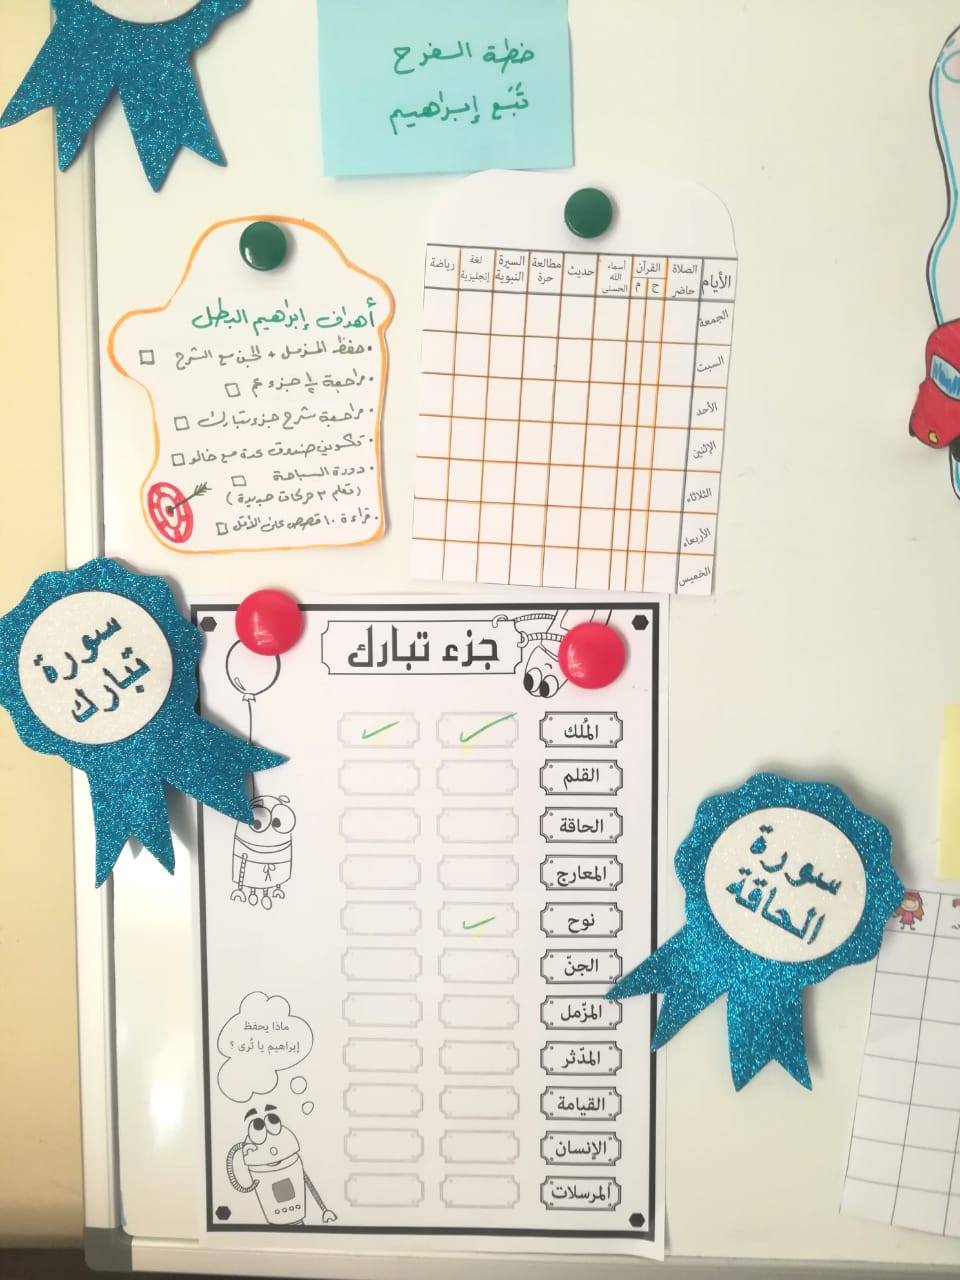 خطة السفرح
تُبَع إبراهيم
أهداف إبراهيم البطل
• حفظ المزمل + الجن مع الشرح
• مراجعة ½ جزء عم
• مراجعة شرح جزء تبارك
• تكوين صندوق عدة مع خالو
• دورة السباحة
(تعلم ٣ حركات جديدة)
• قراءة ١٠ قصص على الأقل
الأيام
الصلاة حاضر
القرآن
ح م
أسماء الله الحسنى
حديث
مطالعة حرة
السيرة النبوية
لغة إنجليزية
رياضة
الجمعة
السبت
الأحد
الإثنين
الثلاثاء
الأربعاء
الخميس
سورة
تبارك
جزء تبارك
المُلك
القلم
الحاقة
المعارج
نوح
الجنّ
المزّمل
المدّثر
القيامة
الإنسان
المرسلات
ماذا يحفظ
إبراهيم يا تُرى ؟
سورة
الحاقة